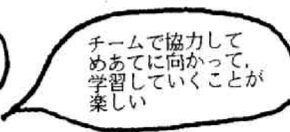 チームで協力して
めあてに向かって,
学習していくことが
楽しい